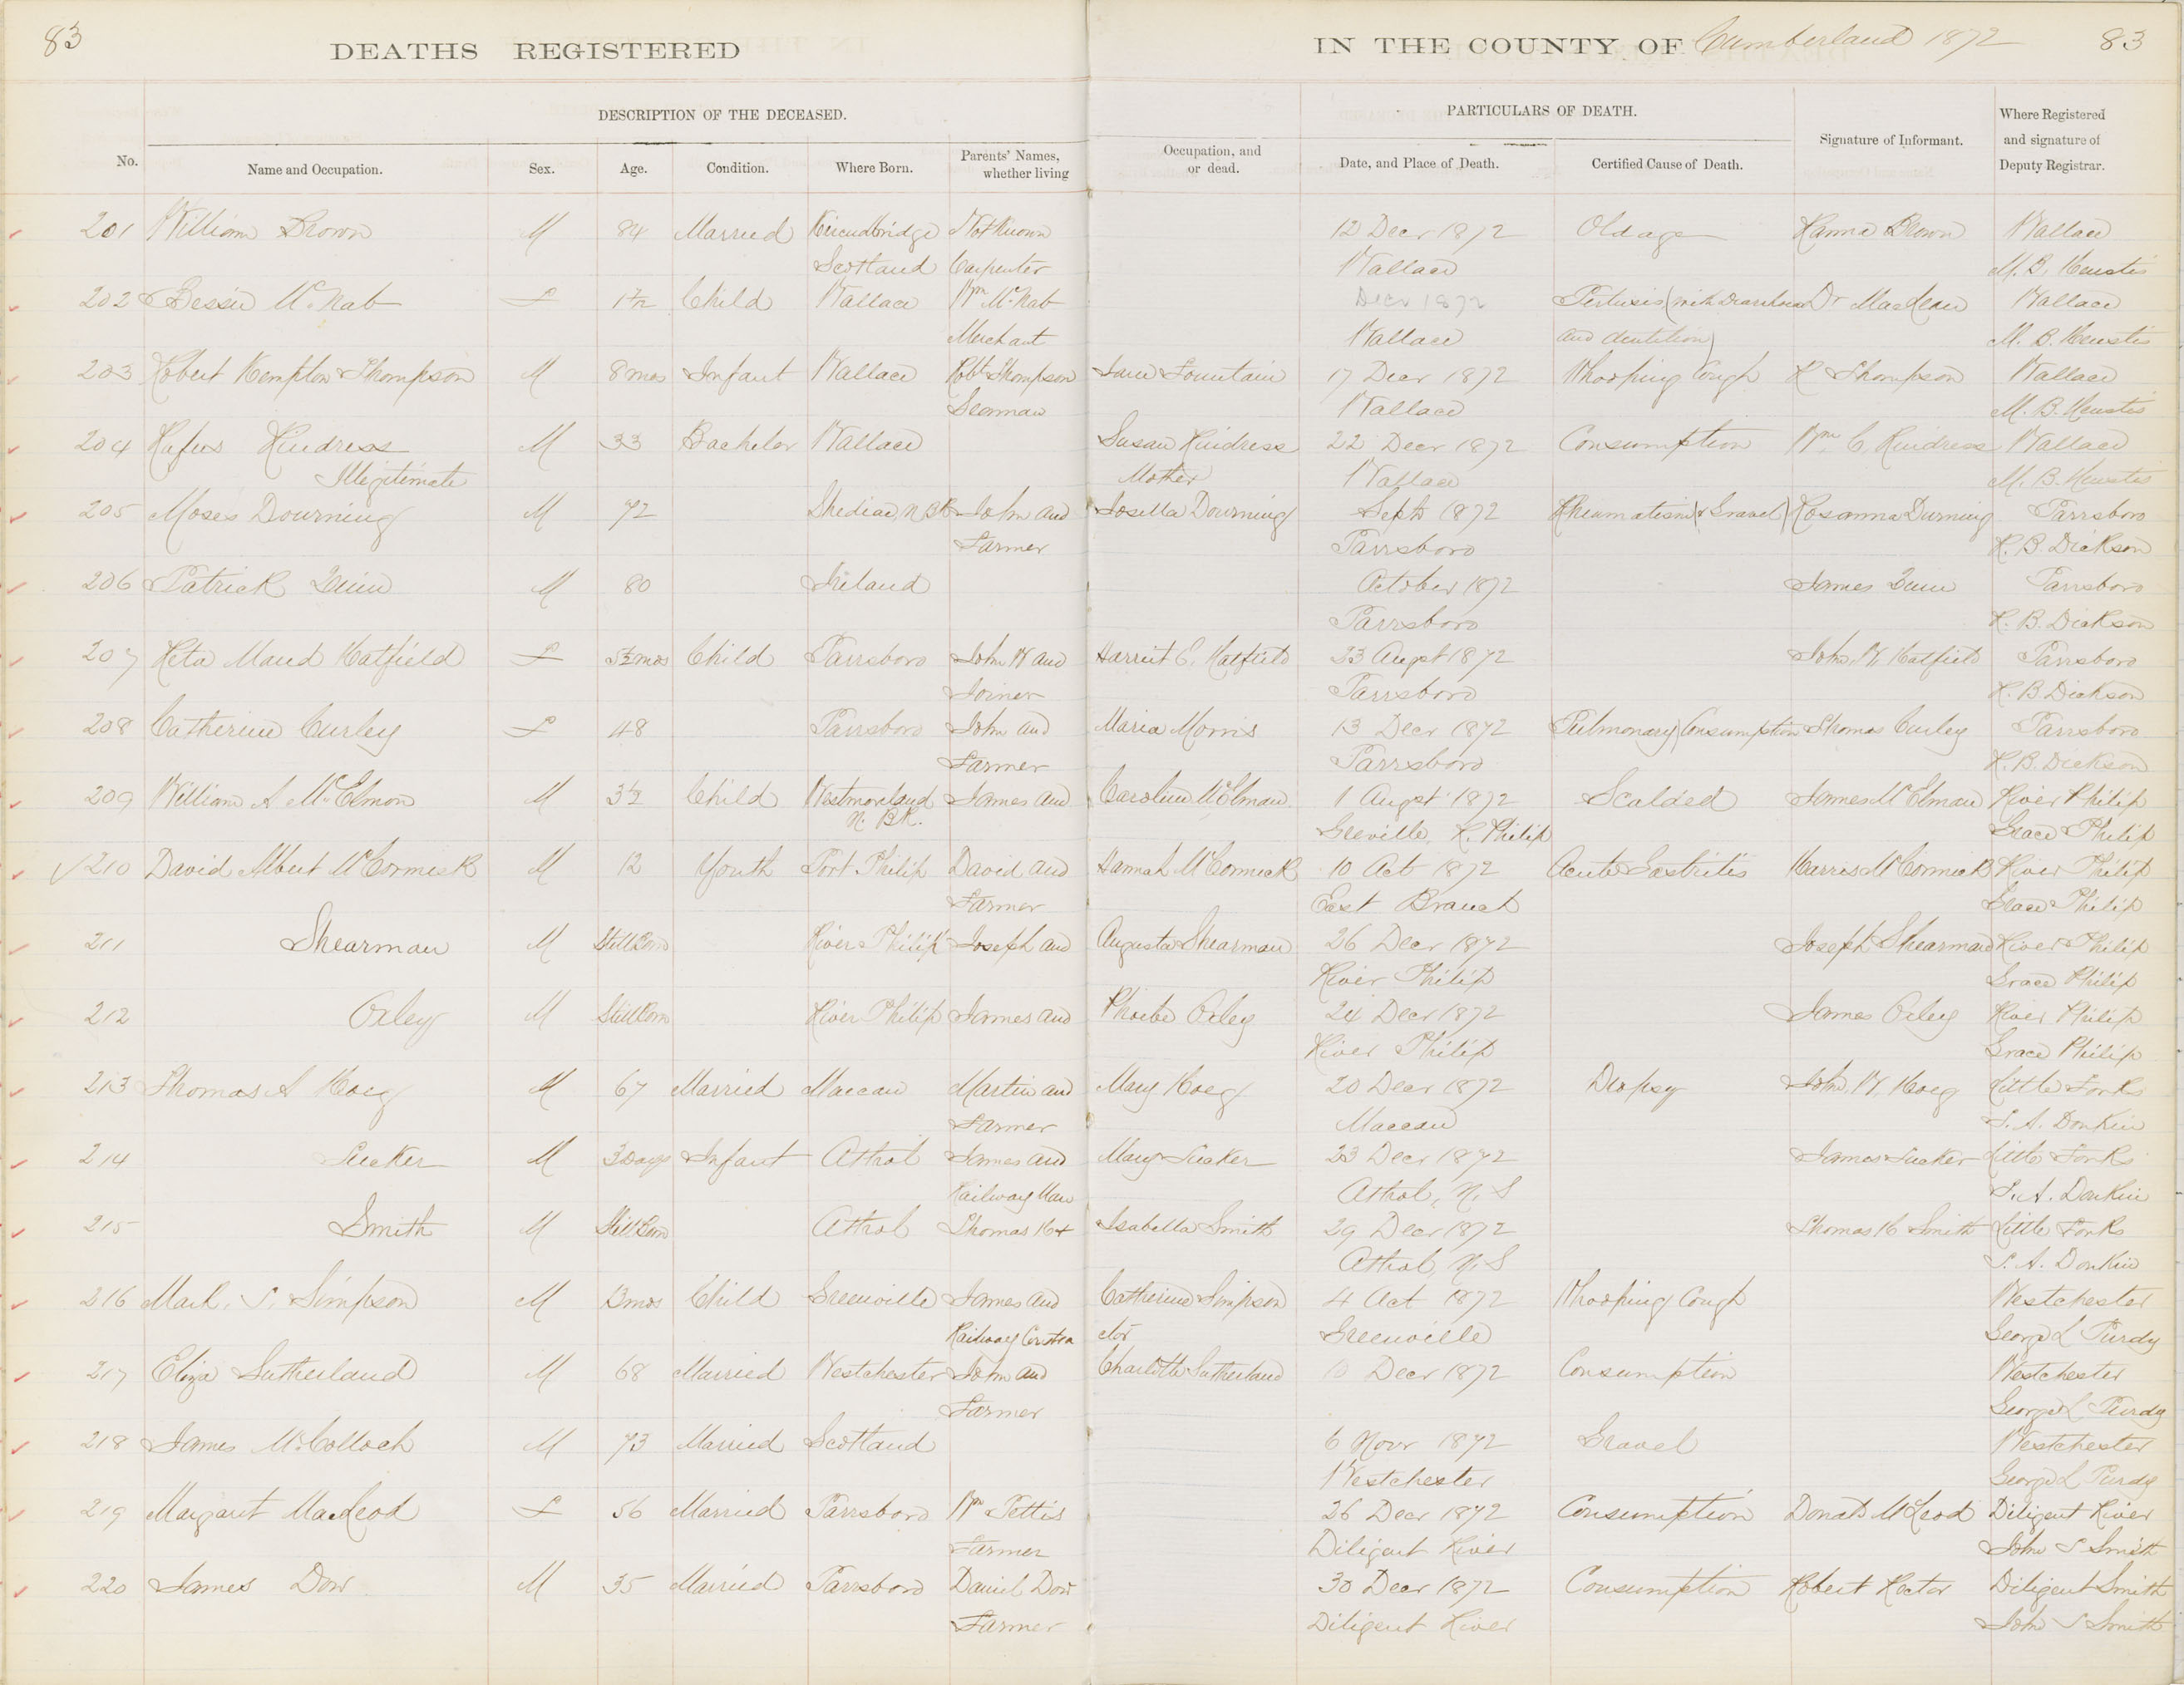 83
DEATHS REGISTERED
IN THE COUNTY OF Cumberland 1872
83
DESCRIPTION OF THE DECEASED.
PARTICULARS OF DEATH.
No.
Name and Occupation.
Sex.
Age.
Condition.
Where Born.
Parents' Names, whether living
Occupation, and or dead.
Date, and Place of Death.
Certified Cause of Death.
Signature of Informant.
Where Registered and signature of Deputy Registrar.
201 William Brown M 84 Married Kircudbridge Not Known 12 Decr 1872 Old age Hanna Brown Wallace
Scotland Carpenter Wallace M. B. Heustis
202 Bessie McNab F Child Wallace Wm McNab Decr 1872 Pertusis (with Diarrhoea Dr MacLean Wallace
Merchant Wallace and dentition) M. B. Heustis
203 Robert Kempton Thompson M 8 mos Infant Wallace Robt Thompson Jane Fountain 17 Decr 1872 Whooping Cough R Thompson Wallace
Seaman Wallace M. B. Heustis
204 Rufus Kindress M 33 Bachelor Wallace Susan Kindress 22 Decr 1872 Consumption Wm C. Kindress Wallace
Illegitimate Mother Wallace M. B. Heustis
205 Moses Dourning M 72 Shediac, N Bk John and Josella Dourning Septr 1872 Rheumatism & Gravel Rosanna Durning Parrsboro
Farmer Parrsboro H. B. Dickson
206 Patrick Quin M 80 Ireland October 1872 James Quin Parrsboro
Parrsboro H. B. Dickson
207 Reta Maud Hatfield F 5½ mos Child Parrsboro John W and Harriet E. Hatfield 23 Augst 1872 John W Hatfield Parrsboro
Joiner Parrsboro H. B Dickson
208 Catherine Curley F 48 Parrsboro John and Maria Morris 13 Decr 1872 Pulmonary Consumption Thomas Curley Parrsboro
Farmer Parrsboro H. B. Dickson
209 William A McElmon M 3½ Child Westmoreland James and Caroline McElman 1 Augst 1872 Scalded James McElman River Philip
N. BK. R. Philip Grace Philip
210 David Albert McCormick M 12 Youth Port Philip David and Hannah McCormick 10 Oct 1872 Acute Gastritis Harris McCormick River Philip
Farmer East Branch Grace Philip
211 Shearman M Still Born River Philip Joseph and Augusta Shearman 26 Decr 1872 Joseph Shearman River Philip
River Philip Grace Philip
212 Oxley M Still Born River Philip James and Phoebe Oxley 24 Decr 1872 James Oxley River Philip
River Philip Grace Philip
213 Thomas A Hoeg M 67 Married Maccan Martin and Mary Hoeg 20 Decr 1872 Dropsy John W. Hoeg Little Forks
Farmer Maccan S. A. Donkin
214 M 3 Days Infant Athol James and Mary 23 Decr 1872 James Little Forks
Railway Man Athol, N. S S. A. Donkin
215 Smith M Still Born Athol Thomas H & Isabella Smith 29 Decr 1872 Thomas H Smith Little Forks
Athol, N. S S. A. Donkin
216 Mark. S. Simpson M 13 mos Child Greenville James and Catherine Simpson 4 Oct 1872 Whooping Cough Westchester
Railway Contra ctor Greenville George L Purdy
217 Eliza Sutherland M 68 Married Westchester John and Charlotte Sutherland 10 Decr 1872 Consumption Westchester
Farmer George L Purdy
218 James McColloch M 73 Married Scotland 6 Novr 1872 Gravel Westchester
Westchester George L Purdy
219 Margaret MacLeod F 56 Married Parrsboro Wm Pettis 26 Decr 1872 Consumption Donald McLeod Diligent River
Farmer Diligent River John S Smith
220 James Dow M 35 Married Parrsboro Daniel Dow 30 Decr 1872 Consumption Robert Rector Diligent Smith
Farmer Diligent River John S Smith